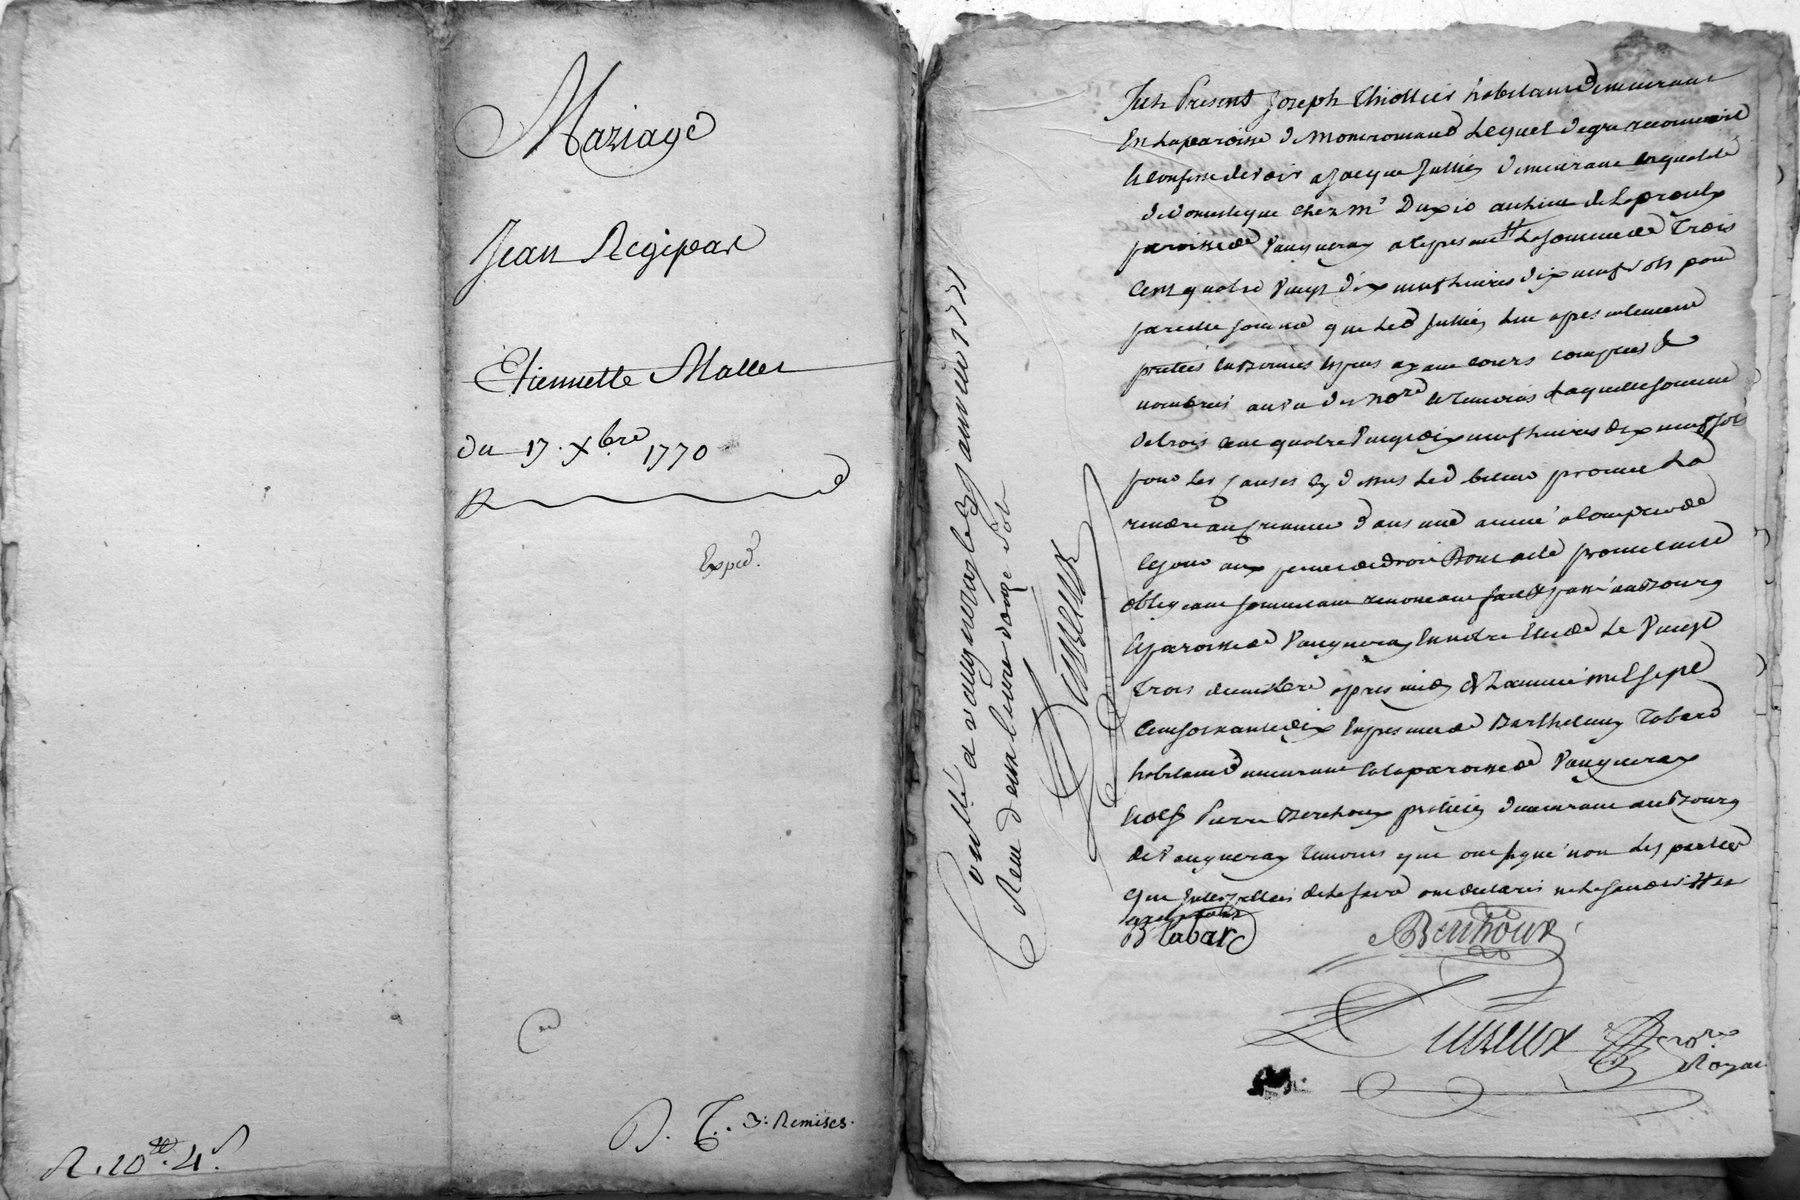 Mariage
Jean Regipas
Etiennette Mallet
du 17. Xbre 1770
Exped.
R. 10 ₶. 4 s.
D. T. 3: Remises.
fut Présent Joseph Thiollier habitant demeurant
en la paroisse de Montromand lequel de gré reconnoit
et confesse devoir a Jacque Jullien demeurant en qualité
de domestique chez Mr
paroisse de Vaugneray a ce present # la somme de Trois
cent quatre vingt dix neuf livres dix neuf sols pour
pareille somme que led Jullien lui a presentement
pretée en bonnes especes ayant cours comptées et
nombrées au vu des nore et temoins laquelle somme
de trois cent quatre vingt dix neuf livres dix neuf sols
pour les causes cy dessus led promet
rendre au dans une année a compter de
ce jour aux peines de droit Dont acte promettant
obligeant soumettant renonçant fait et passé au Bourg
et paroisse de Vaugneray en notre etude le vingt
trois decembre apres midy et L'année mil sept
cent soixante dix en presence de Barthelemy Tabard
habitant demeurant en la paroisse de Vaugneray
et de sr Pierre Berthoux praticien demeurant au Bourg
de Vaugneray temoins qui ont signé non les parties
qui interpellées de le faire ont declaré ne le savoir #
B tabard
Berthoux
nore
Royal
Conllé a vaugneray le janvier 1771
Reçu deux livres douze sols